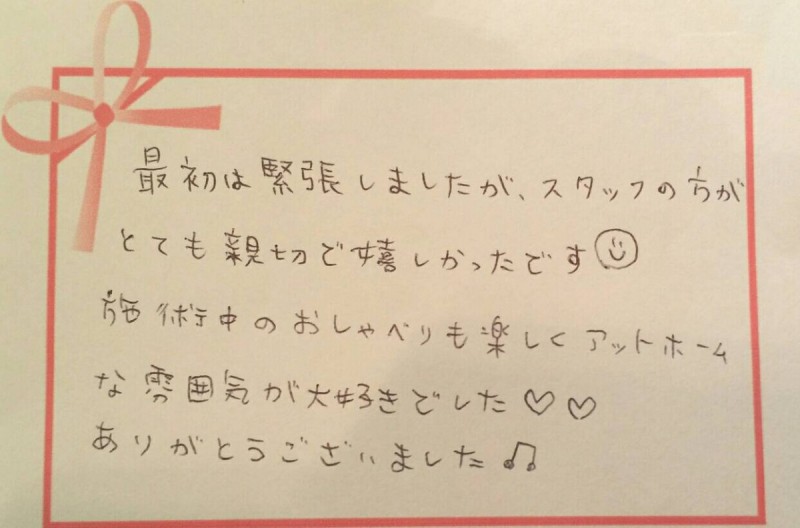 最初は緊張しましたが、スタッフの方が
とても親切で嬉しかったです☺
施術中のおしゃべりも楽しくアットホーム
な雰囲気が大好きでした♡♡
ありがとうございました♫